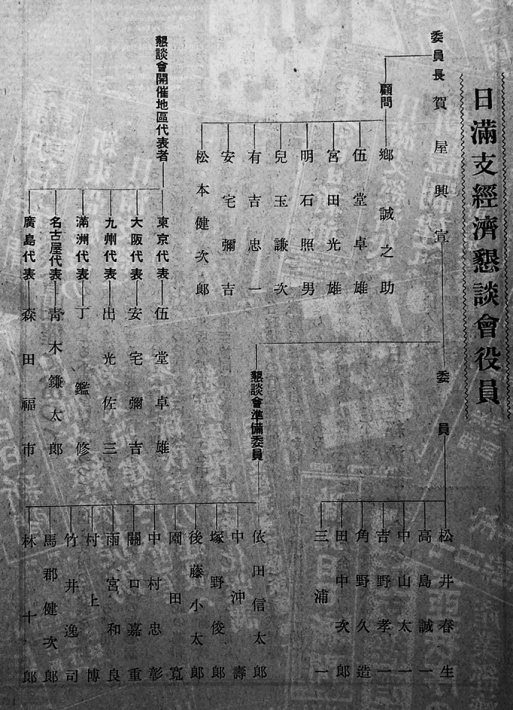 日滿支經濟懇談會役員
委員長 賀屋興宣
顧問
鄕誠之助
伍堂卓雄
宮田光雄
明石照男
兒玉謙次
有吉忠一
安宅彌吉
松本健次郎
懇談會開催地區代表者
東京代表 伍堂卓雄
大阪代表 安宅彌吉
九州代表 出光佐三
滿洲代表 丁鑑修
名古屋代表 靑木鎌太郎
廣島代表 森田福市
委員
松井春生
高島誠一
中山太一
吉野孝一
角野久造
田中次郎
三浦一
懇談會準備委員
依田信太郎
中沖壽
塚野俊郎
後藤小太郎
園田寬
中村忠彰
關口嘉重
雨宮和良
村上博
竹井逸司
馬郡健次郎
林十郎